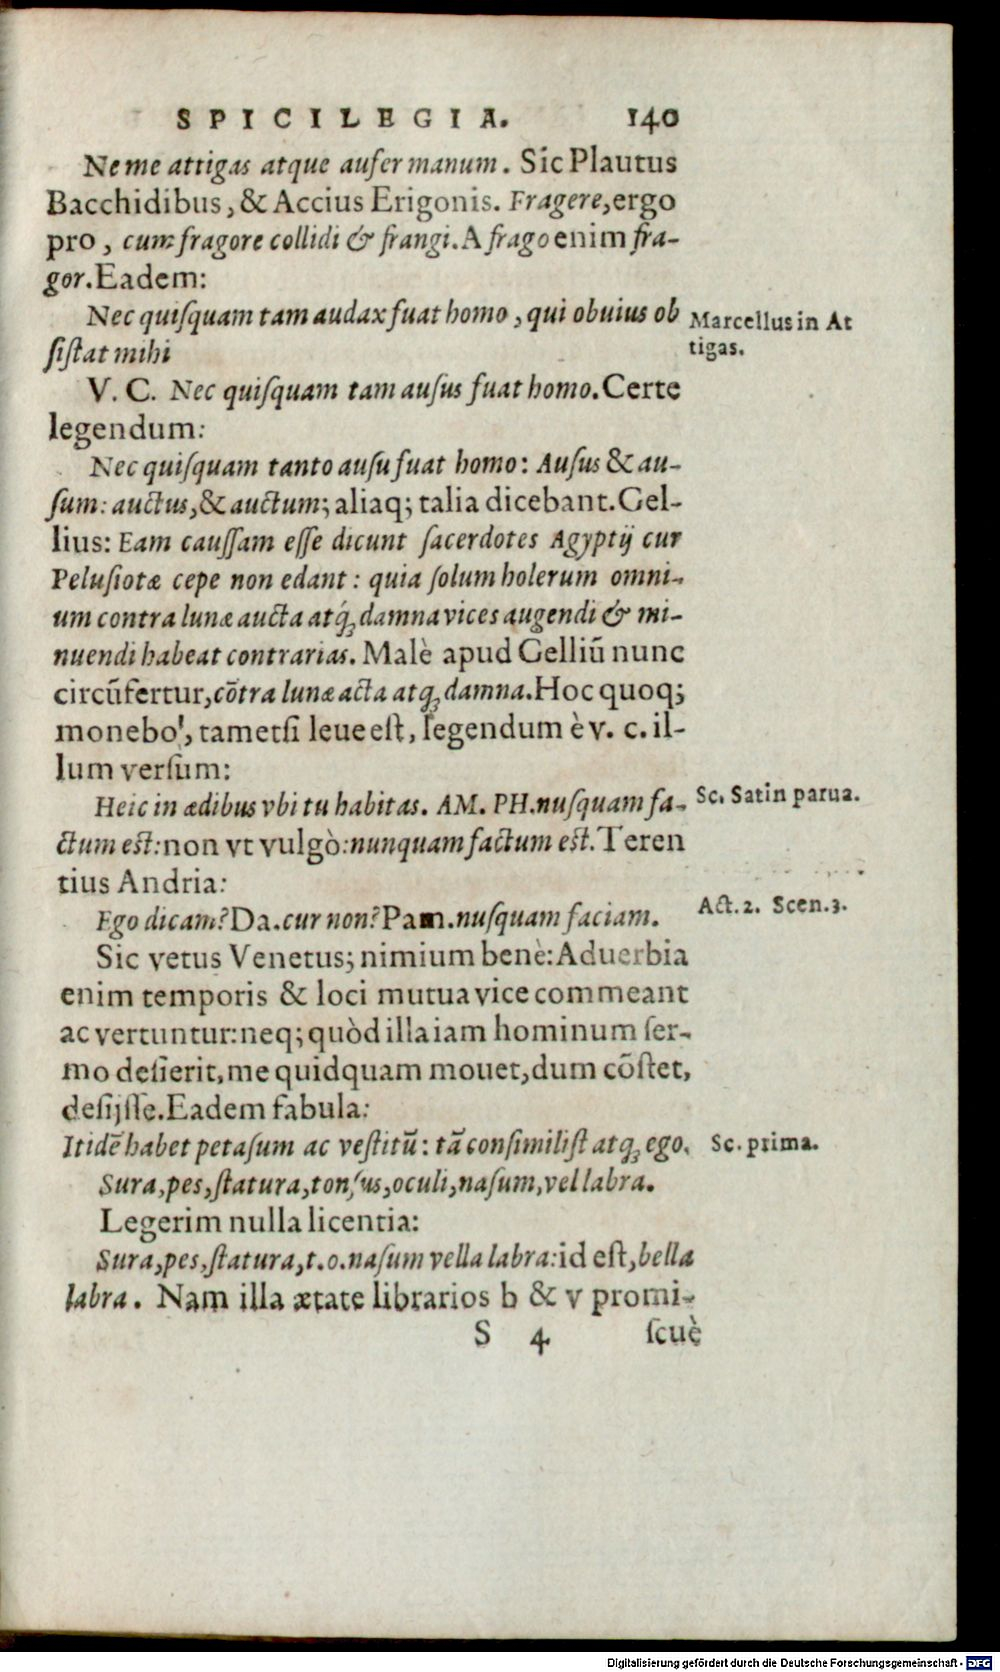 SPICILEGIA. 140
Ne me attigas atque aufer manum. Sic Plautus
Bacchidibus, & Accius Erigonis. Fragere, ergo
pro, cum fragore collidi & frangi. A frago enim fra-
gor. Eadem:
Nec quiſquam tam audax fuat homo, qui obuius ob
ſiſtat mihi
Marcellus in At
tigas.
V. C. Nec quiſquam tam auſus fuat homo. Certe
legendum:
Nec quiſquam tanto auſu fuat homo: Auſus & au-
ſum: auctus, & auctum; aliaq; talia dicebant. Gel-
lius: Eam cauſſam eſſe dicunt ſacerdotes Agyptij cur
Peluſiotæ cepe non edant: quia ſolum holerum omni-
um contra lunæ aucta atq́; damna vices augendi & mi-
nuendi habeat contrarias. Malè apud Belliũ nunc
circũfertur, cõtra lunæ acta atq; damna. Hoc quoq;
monebo, tametſi leue eſt, legendum è v. c. il-
lum verſum:
Heic in ædibus vbi tu habitas. AM. PH. nuſquam fa-
Sc. Satin parua.
ctum eſt: non vt vulgò: nunquam factum eſt. Teren
tius Andria:
Ego dicam? Da. cur non? Pam. nuſquam faciam.
Act. 2. Scen. 3.
Sic vetus Venetus; nimium benè: Aduerbia
enim temporis & loci mutua vice commeant
ac vertuntur: neq; quòd illa iam hominum ſer-
mo deſierit, me quidquam mouet, dum cõſtet,
deſijſſe. Eadem fabula:
Itidẽ habet petaſum ac veſtitũ: tã conſimiliſt atq; ego.
Sc. prima.
Sura, pes, ſtatura, tonſus, oculi, naſum, vel labra.
Legerim nulla licentia:
Sura, pes, ſtatura, t. o. naſum vella labra: id eſt, bella
labra. Nam illa ætate librarios b & v promi-
S 4 ſcuè
Digitalisierung gefördert durch die Deutsche Forschungsgemeinschaft - DFG